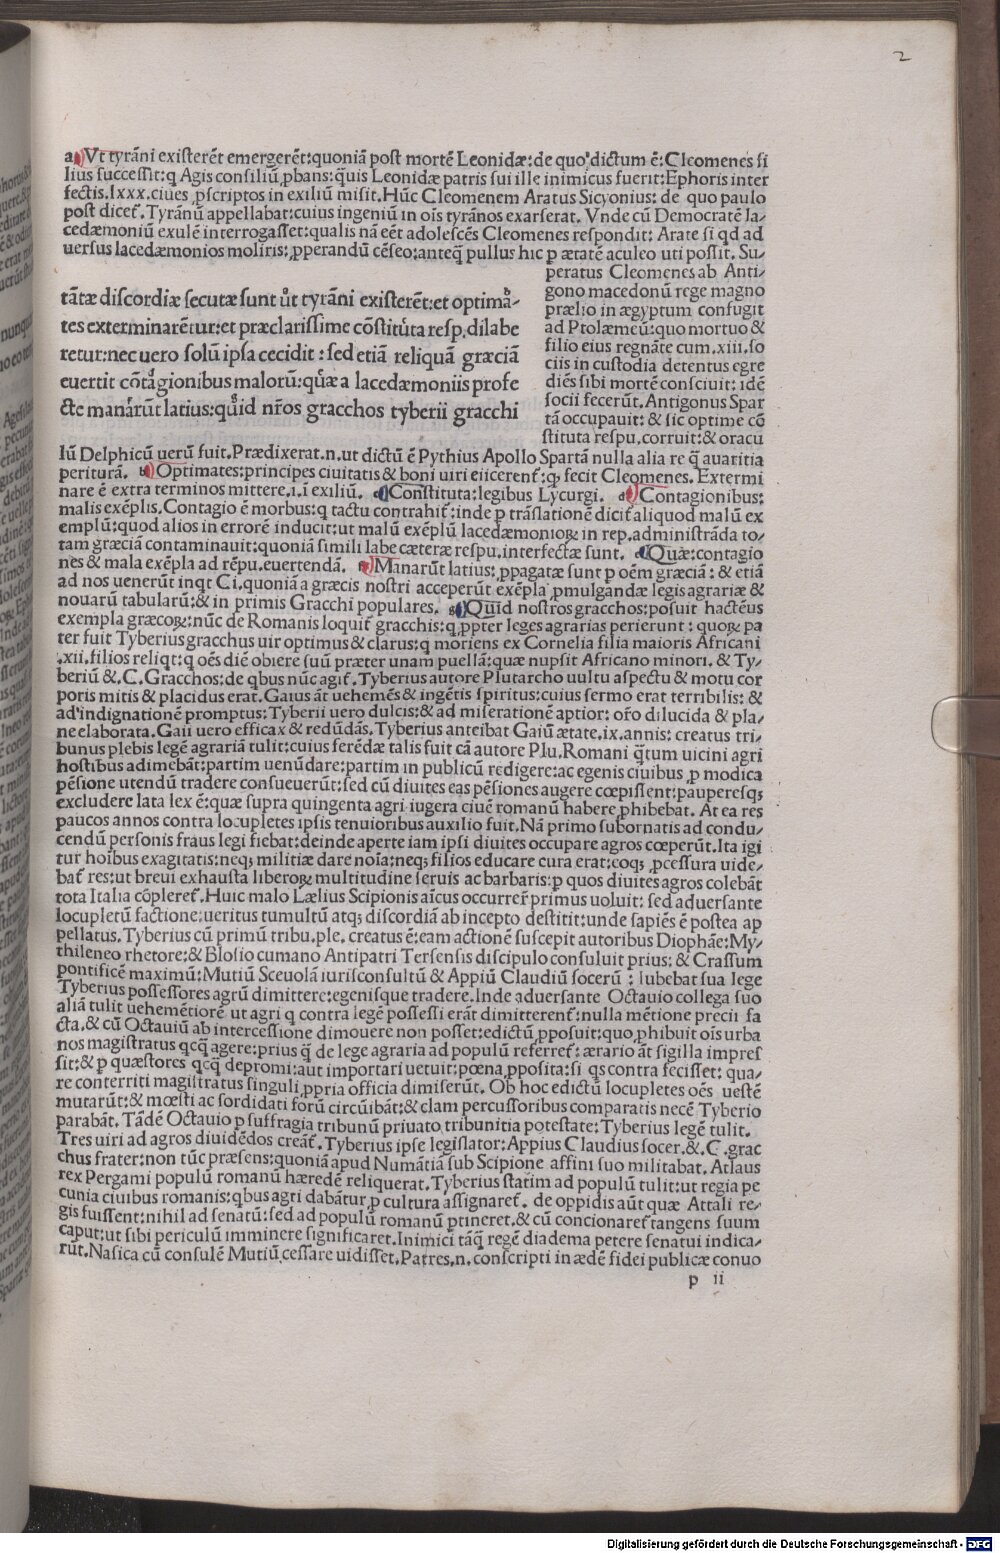 2
a Vt tyrãni existerẽt emergerẽt:quoniã post mortẽ Leonidæ:de quo dictum ẽ:Cleomenes fi
lius successit:q Agis consiliũ,pbans:q̃uis Leonidæ patris sui ille inimicus fuerit:Ephoris inter
fectis.lxxx.ciues ,pscriptos in exiliũ misit.Hũc Cleomenem Aratus Sicyonius: de quo paulo
post dicet̃.Tyrãnũ appellabat:cuius ingeniũ in oĩs tyrãnos exarserat. Vnde cũ Democratẽ la⸗
cedæmoniũ exulẽ interrogasset:qualis nã eẽt adolescẽs Cleomenes respondit: Arate si qd ad
uersus lacedæmonios moliris:,pperandũ cẽseo:anteq̃ pullus hic p ætatẽ aculeo uti possit. Su⸗
peratus Cleomenes ab Anti⸗
gono macedonũ rege magno
prælio in ægyptum confugit
ad Ptolæmeũ:quo mortuo &
filio eius regnãte cum.xiii.so
ciis in custodia detentus egre
diẽs sibi mortẽ consciuit: idẽ
socii fecerũt. Antigonus Spar
tã occupauit: & sic optime cõ
stituta respu.corruit:& oracu
tãtæ discordiæ secutæ sunt ut tyrãni existerẽt:et optima⸗
tes exterminarẽtur:et præclarissime cõstituta resp.dilabe
retur:nec uero solũ ipsa cecidit : sed etiã reliquã græciã
euertit cõtagionibus malorũ:quæ a lacedæmoniis profe
ctæ manarũt latius:quid nr̃os gracchos tyberii gracchi
lũ Delphicũ uerũ fuit.Prædixerat.n.ut dictũ ẽ Pythius Apollo Spartã nulla alia re q̃ auaritia
perituram̃. b Optimates:principes ciuitatis & boni uiri eiicerent̃:qꝫ fecit Cleomenes. Extermi
nare ẽ extra terminos mittere.i.ĩ exiliũ. c Constituta:legibus Lycurgi. d Contagionibus:
malis exẽplis.Contagio ẽ morbus:q tactu contrahit̃:inde p trãslationẽ dicit̃ aliquod malũ ex
emplũ:quod alios in errorẽ inducit:ut malũ exẽplũ lacedæmonioꝝ in rep.administrãda to⸗
tam græciã contaminauit:quoniã simili labe cæteræ respu.interfectæ sunt. e Quæ:contagio
nes & mala exẽpla ad rẽpu.euertendã. f Manarũt latius:,ppagatæ sunt p oẽm græciã: & etiã
ad nos uenerũt inqt Ci.quoniã a græcis nostri acceperũt exẽpla ,pmulgandæ legis agrariæ &
nouarũ tabularũ:& in primis Gracchi populares. g Quid nostros gracchos:posuit hactẽus
exempla græcoꝝ:nũc de Romanis loquit̃ gracchis:q ,ppter leges agrarias perierunt : quoꝝ pa
ter fuit Tyberius gracchus uir optimus & clarus:q moriens ex Cornelia filia maioris Africani
.xii.filios reliqt:q oẽs diẽ obiere suũ præter unam puellã:quæ nupsit Africano minori. & Ty⸗
beriũ &.C.Gracchos:de qbus nũc agit̃.Tyberius autore Plutarcho uultu aspectu & motu cor
poris mitis & placidus erat. Gaius ãt uehemẽs & ingẽtis spiritus:cuius sermo erat terribilis: &
ad indignationẽ promptus:Tyberii uero dulcis:& ad miserationẽ aptior: or̃o dilucida & pla⸗
ne elaborata.Gaii uero efficax & redũdãs.Tyberius anteibat Gaiũ ætate.ix.annis: creatus tri⸗
bunus plebis legẽ agrariã tulit:cuius ferẽdæ talis fuit cã autore Plu.Romani q̃tum uicini agri
hostibus adimebãt:partim uenũdare:partim in publicũ redigere:ac egenis ciuibus ,p modica
pẽsione utendũ tradere consueuerũt:sed cũ diuites eas pẽsiones augere cœpissent:pauperesqꝫ
excludere lata lex ẽ:quæ supra quingenta agri iugera ciuẽ romanũ habere ,phibebat. At ea res
paucos annos contra locupletes ipsis tenuioribus auxilio fuit.Nã primo subornatis ad condu⸗
cendũ personis fraus legi fiebat:deinde aperte iam ipsi diuites occupare agros cœperũt.Ita igi
tur hoĩbus exagitatis:neqꝫ militiæ dare noĩa:neqꝫ filios educare cura erat:eoqꝫ ,pcessura uide⸗
bat̃ res:ut breui exhausta liberoꝝ multitudine seruis ac barbaris:p quos diuites agros colebãt
tota Italia cõpleret̃.Huic malo Lælius Scipionis aĩcus occurrer̃ primus uoluit: sed aduersante
locupletũ factione:ueritus tumultũ atqꝫ discordiã ab incepto destitit:unde sapiẽs ẽ postea ap
pellatus.Tyberius cũ primũ tribu.ple. creatus ẽ:eam actionẽ suscepit autoribus Diophãe:My⸗
thileneo rhetore:& Blosio cumano Antipatri Tersensis discipulo consuluit prius: & Crassum
pontificẽ maximũ:Mutiũ Sceuolã iurisconsultũ & Appiũ Claudiũ socerũ : Iubebat sua lege
Tyberius possessores agrũ dimittere:egenisque tradere.Inde aduersante Octauio collega suo
aliã tulit uehemẽtiorẽ ut agri q contra legẽ possessi erãt dimitterent̃:nulla mẽtione precii fa
cta.& cũ Octauiũ ab intercessione dimouere non posset:edictũ ,pposuit:quo ,phibuit oĩs urba
nos magistratus qcq̃ agere:prius q̃ de lege agraria ad populũ referret̃: ærario ãt sigilla impres
sit:& p quæstores qcq̃ depromi:aut importari uetuit:pœna ,pposita:si qs contra fecisset: qua⸗
re conterriti magistratus singuli ,ppria officia dimiserũt. Ob hoc edictũ locupletes oẽs uestẽ
mutarũt:& mœsti ac sordidati forũ circũibãt:& clam percussoribus comparatis necẽ Tyberio
parabãt. Tãdẽ Octauio p suffragia tribunũ priuato tribunitia potestate: Tyberius legẽ tulit.
Tres uiri ad agros diuidẽdos creãt̃.Tyberius ipse legislator:Appius Claudius socer.&.C.grac
chus frater:non tũc præsens:quoniã apud Numãtiã sub Scipione affini suo militabat. Atlaus
rex Pergami populũ romanũ hæredẽ reliquerat.Tyberius statim ad populũ tulit:ut regia pe
cunia ciuibus romanis:qbus agri dabãtur,p cultura assignaret̃. de oppidis aũt quæ Attali re⸗
gis fuissent:nihil ad senatũ:sed ad populũ romanũ ptineret.& cũ concionaret̃ tangens suum
caput:ut sibi periculũ imminere significaret.Inimici tãq̃ regẽ diadema petere senatui indica⸗
rũt.Nasica cũ consulẽ Mutiũ cessare uidisset.Patres.n.conscripti in ædẽ fidei publicæ conuo
p ii
Digitalisierung gefördert durch die Deutsche Forschungsgemeinschaft - DFG